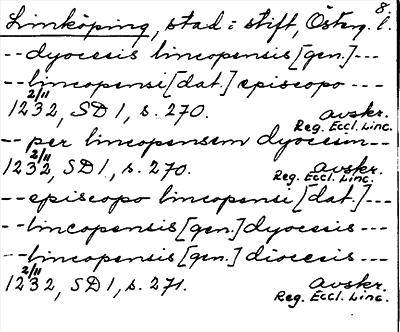 8.
Linköping, stad i stift, Österg. l.
-- dyocesis lincopensis [gen.] ---
-- lincopensi [dat.] episcopo ---
1232 2/11, SD 1, s. 270. avskr.
Reg. Eccl. Linc.
-- per lincopensem dyocesim --
1232 2/11, SD 1, s. 270. avskr.
Reg. Eccl. Linc.
-- episcopo lincopensi [dat.] ---
-- lincopensis [gen.] dyocesis ---
-- lincopensis [gen.] diocesis ---
1232 2/11, SD 1, s. 271. avskr.
Reg. Eccl. Linc.